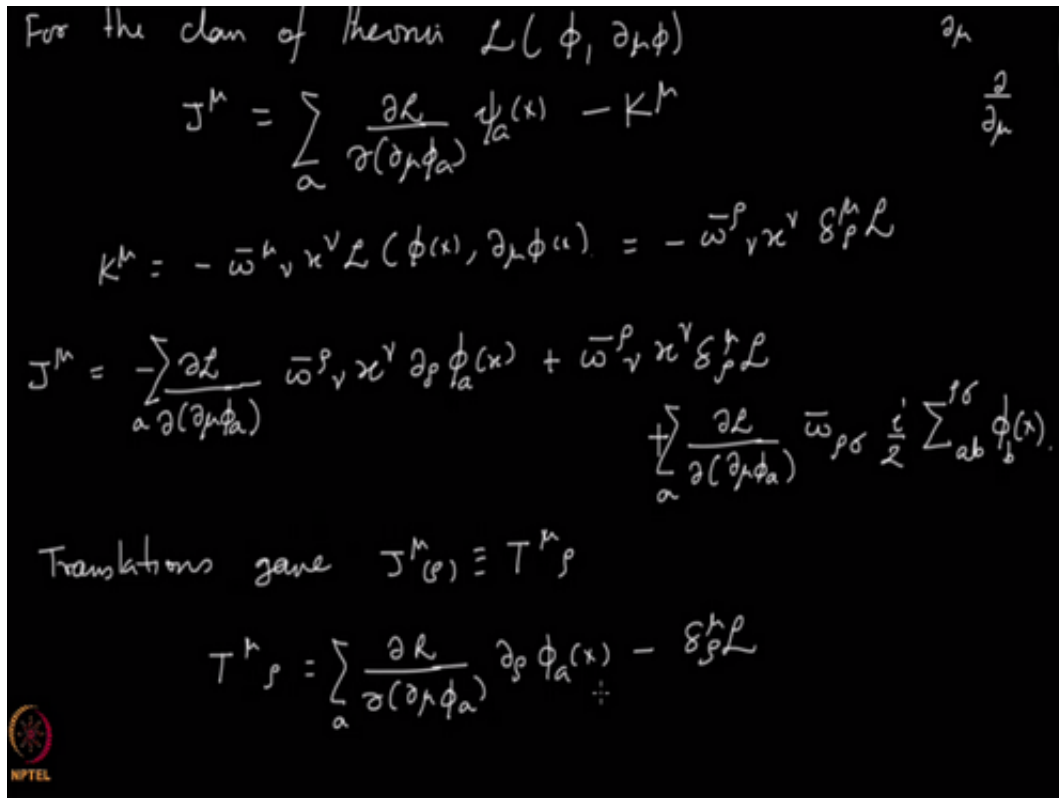 For the class of theories ℒ( ϕ, ∂_μϕ) ∂_μ
J^μ = ∑_a ∂ℒ/∂(∂_μϕ_a) ψ_a(x) − K^μ ∂/∂_μ
K^μ = − ω̄^μ_ν x^ν ℒ ( ϕ(x), ∂_μϕ(x) = − ω̄^ρ_ν x^ν δ^μ_ρ ℒ
J^μ = −∑_a ∂ℒ/∂(∂_μϕ_a) ω̄^ρ_ν x^ν ∂_ρ ϕ_a(x) + ω̄^ρ_ν x^ν δ^μ_ρ ℒ
+∑_a ∂ℒ/∂(∂_μϕ_a) ω̄_ρσ i/2 ∑^ρσ_ab ϕ_b(x).
Translations gave J^μ_(ρ) ≡ T^μ_ρ
T^μ_ρ = ∑_a ∂ℒ/∂(∂_μϕ_a) ∂_ρ ϕ_a(x) − δ^μ_ρ ℒ
NPTEL